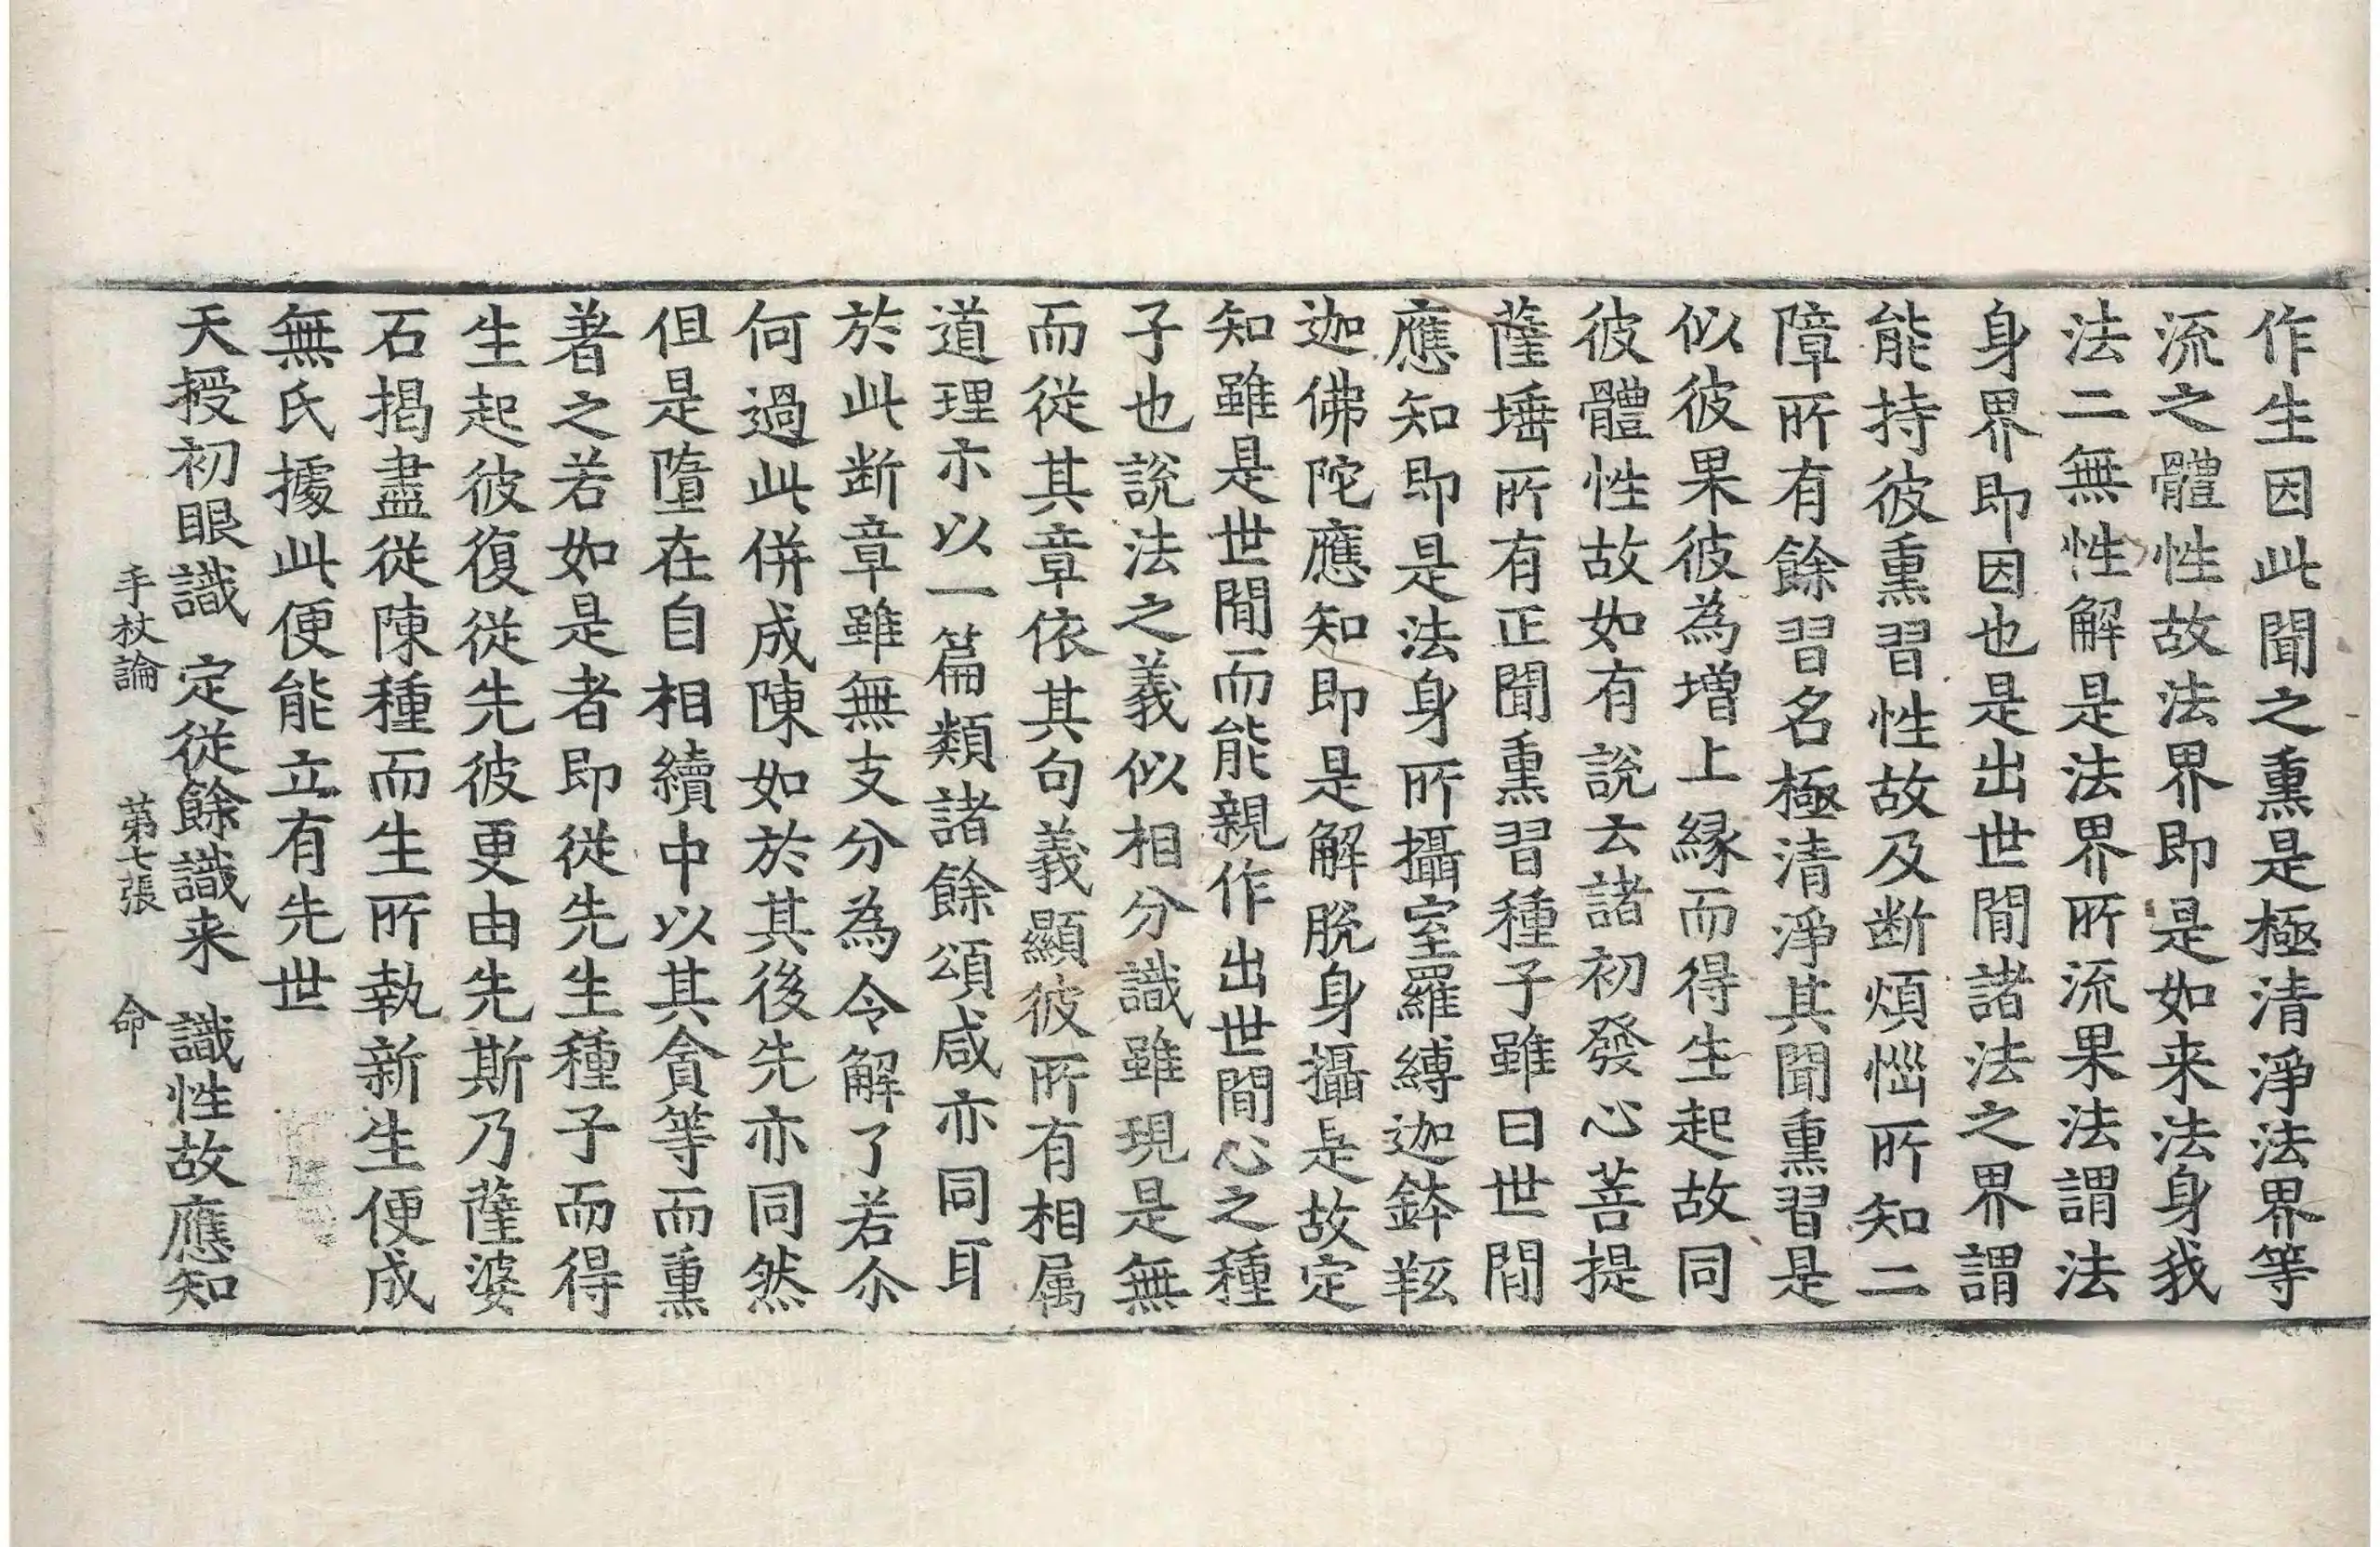 作生因此聞之熏是極清淨法界等
流之體性故法界即是如来法身我
法二無性解是法界所流果法謂法
身界即因也是出世間諸法之界謂
能持彼熏習性故及断煩惱所知二
障所有餘習名極清淨其聞熏習是
似彼果彼為增上緣而得生起故同
彼體性故如有說云諸初發心菩提
薩埵所有正聞熏習種子雖曰世間
應知即是法身所攝室羅縛迦鉢羝
迦佛陀應知即是解脫身攝是故定
知雖是世間而能親作出世間心之種
子也說法之義似相分識雖現是無
而從其章依其句義顯彼所有相属
道理亦以一篇類諸餘頌咸亦同耳
於此断章雖無支分為令解了若尒
何過此併成陳如於其後先亦同然
但是墮在自相續中以其貪等而熏
著之若如是者即從先生種子而得
生起彼復從先彼更由先斯乃薩婆
石揭盡從陳種而生所執新生便成
無氏據此便能立有先世
天授初眼識 定從餘識来 識性故應知
手杖論 第七張 命